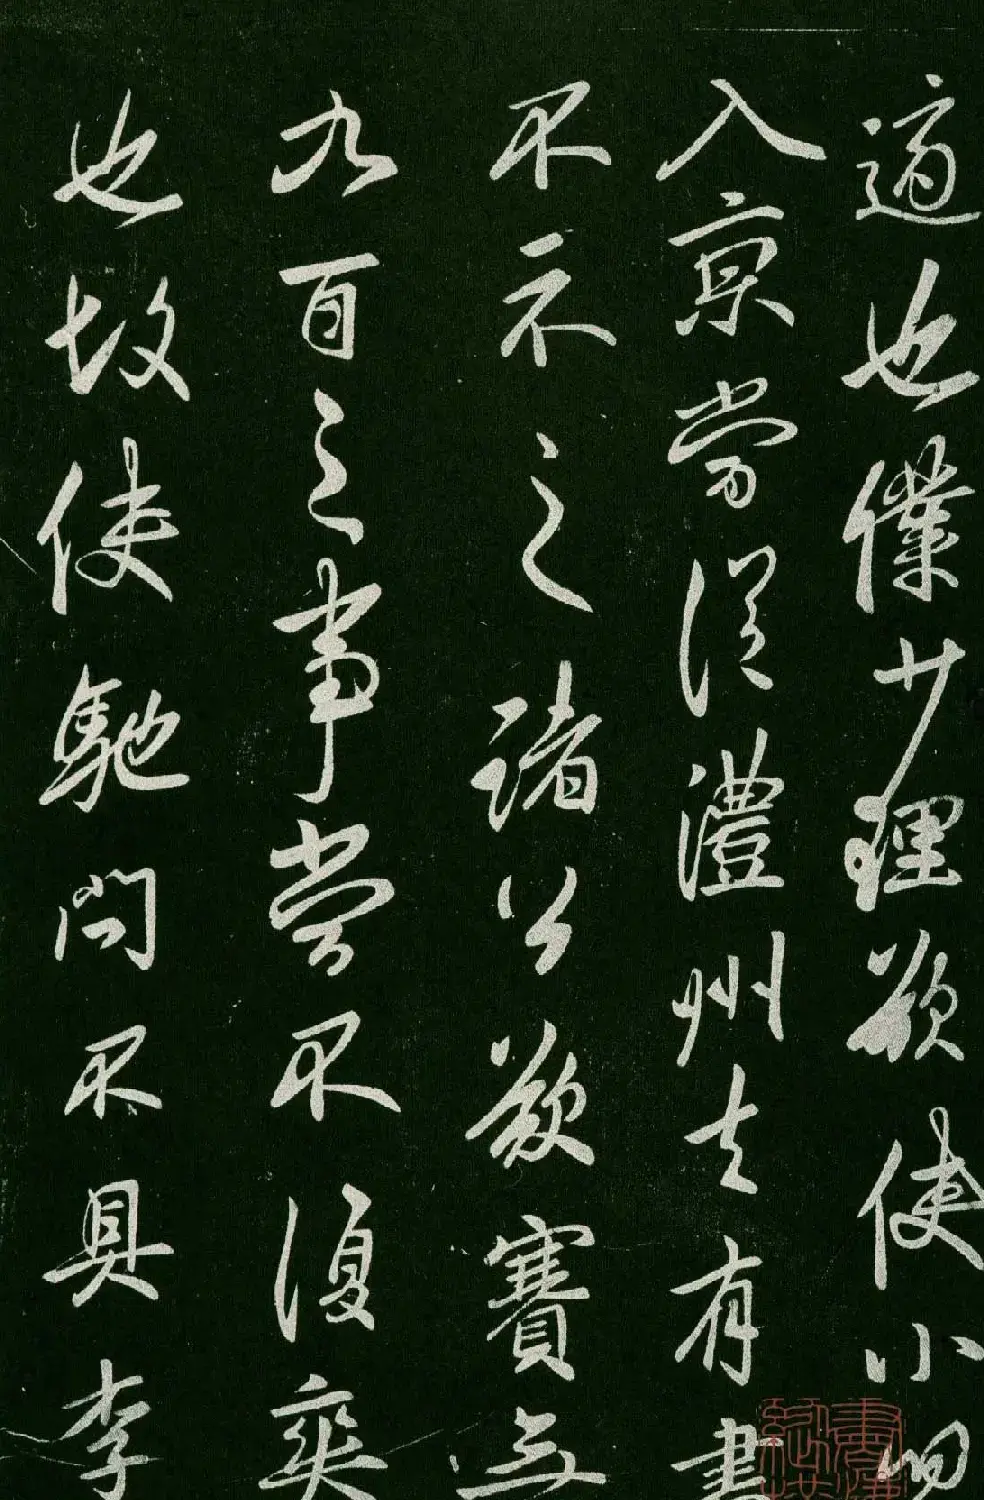 適也僕少理欲使小
入京當從澧州去有書
不示之諸公欲賽
九百之事當不復爽
也故使馳問不具李